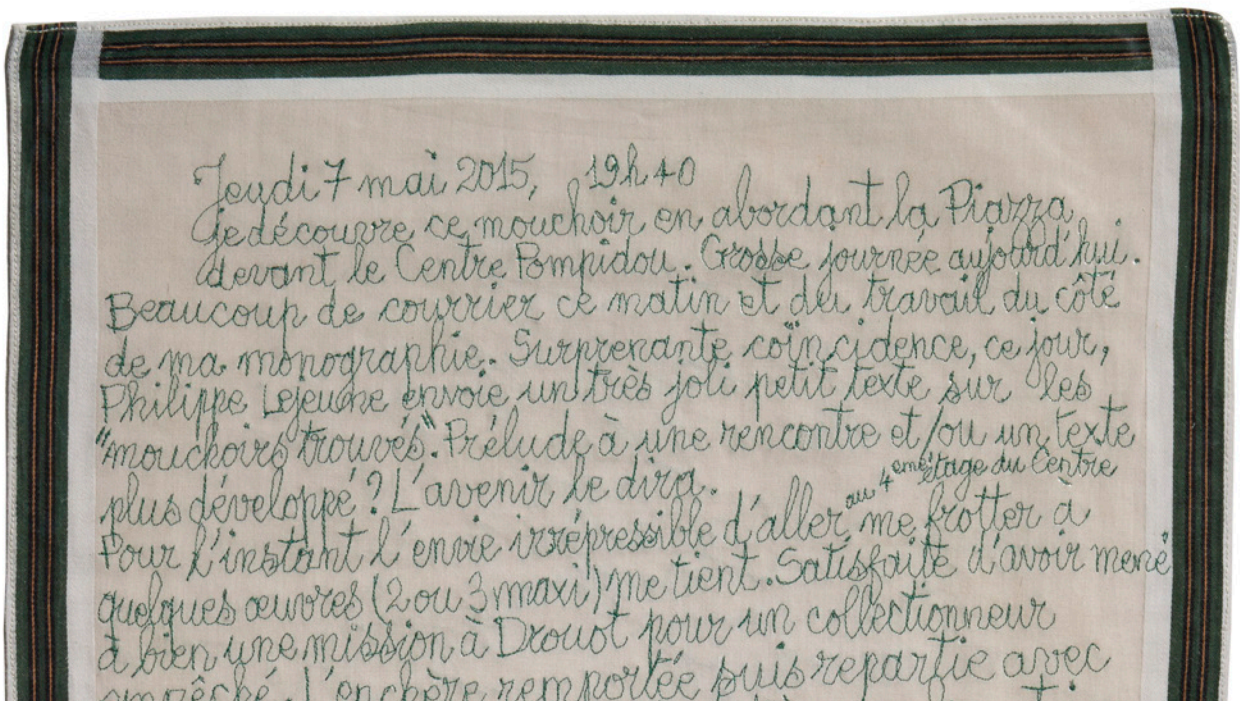 Jeudi 7 mai 2015, 19h40
je découvre ce mouchoir en abordant la Piazza
devant le Centre Pompidou. Grosse journée aujourd'hui.
Beaucoup de courrier ce matin et du travail du côté
de ma monographie. Surprenante coïncidence, ce jour,
Philippe Lejeune envoie un très joli petit texte sur les
"mouchoirs trouvés". Prélude à une rencontre et/ou un texte
plus développé? L'avenir le dira.
au 4ème étage du Centre
Pour l'instant l'envie irrépressible d'aller me frotter a
quelques œuvres (2 ou 3 maxi) me tient. Satisfaite d'avoir mené
à bien une mission à Drouot pour un collectionneur
empêché. L'enchère remportée puis repartie avec